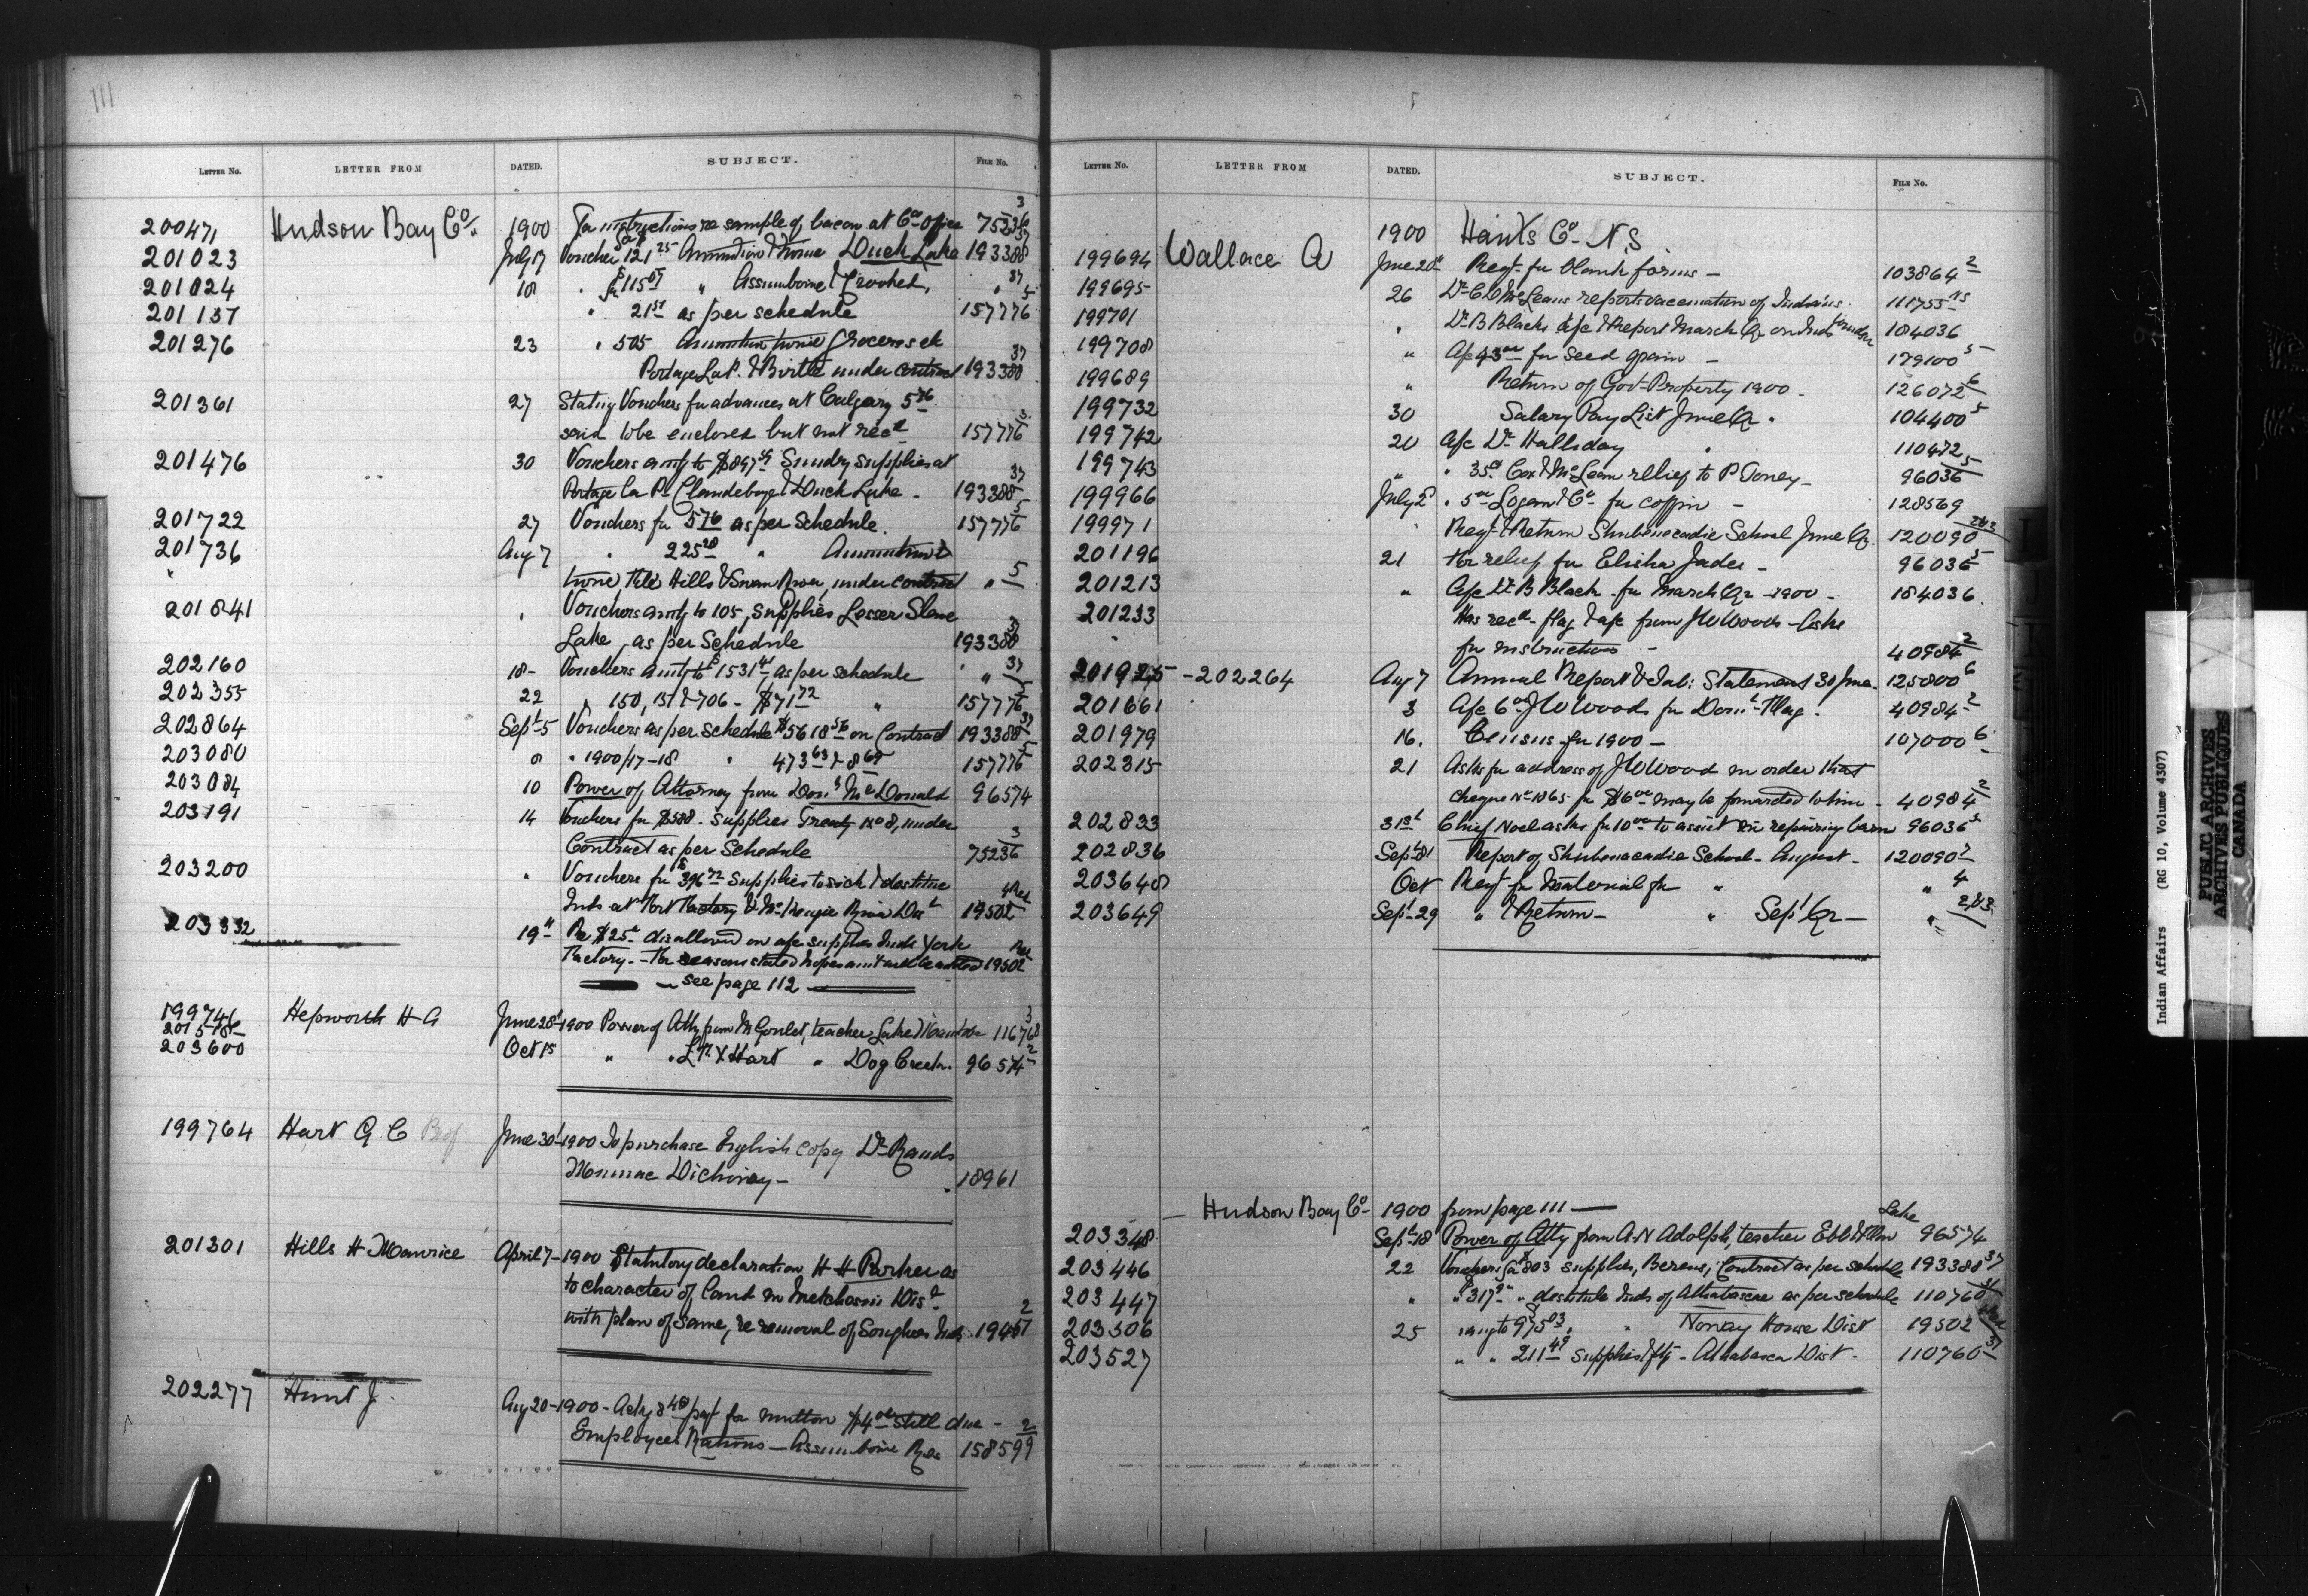 111
LETTER NO. LETTER FROM DATED. SUBJECT. FILE No.
200471 Hudson Bay Co. 1900 For instructions re sample of bacon at Co's office 75236 3
201023 July 17 Voucher for 121 25 Ammunition & twine Duck Lake 193388 37
201024 18 " for $115 " Assiniboine & Crooked, " 37
201137 " 21 51 as per schedule 157776 5
201276 23 " 505 Ammunition twine Groceries etc
Portage La P. & Birtle under contract 193388 37
201361 27 Stating Vouchers for advances at Calgary 5 76
said to be enclosed but not recd 157776 5
201476 30 Vouchers amtg to $897 Sundry supplies at
Portage La P. Clandeboye & Duck Lake - 193388 37
201722 27 Vouchers for 576 as per Schedule. 157776 5
201736 Aug 7 " 225 20 " Ammunition &
" twine, File Hills & Swan River, under contract " 5
201841 " Vouchers amtg to 105, supplies Lesser Slave
Lake, as per Schedule 193388 37
202160 18- Vouchers amtg to $1531 41 as per schedule " 37
202355 22 " 150, 151 & 706 - $71 72 " 157776 5
202864 Sept 5 Vouchers as per schedule $5618 56 on Contract 193388 37
203080 8 " 1900/17-18 " 473 63 & 8 65 157776 5
203084 10 Power of Attorney from Don. McDonald 96574
203191 14 Vouchers for $588 - supplies Treaty No 8, under
Contract as per Schedule 75236 3
203200 " Vouchers for $396 72 supplies to sick & destitute
Inds at York Factory & McKenzie River Dist 19502
203332 19th Re $25 disallowed on a/c supplies Inds York
Factory - For reasons stated hopes amt will be added 19502
- see page 112 -
199746 Hepworth H A June 28 1900 Power of Atty from M Goulet, teacher Lake Manitoba 116768 3
201518
203600 Oct 15 " " L N Y Hart " Dog Creek. 96574 2
199764 Hart G C Prof June 30 1900 To purchase English copy Dr Rands
Micmac Dictionary - 18961
201301 Hills H Maurice April 7- 1900 Statutory declaration H H Parker as
to character of land in Metchosin Dist
with plan of same, re removal of Songhees Inds. 19467 2
202277 Hunt J. Aug 20-1900 - Ackg 8 40 pay't for mutton $4 00 still due -
Employees Rations - Assiniboine Res 158599 2
LETTER NO. LETTER FROM DATED. SUBJECT. FILE No.
1900 Hants Co - N.S.
199694 Wallace A June 20th Reqt for blank forms - 103864 2
199695 26 Dr C D McLeans report vaccination of Indians. 111755 NS
199701 " Dr B Blacks a/c & Report March Qr on Inds 184036
199708 " A/c 43 for seed grain - 179100 5
199689 " Return of Govt Property 1900 - 126072 6
199732 30 Salary Pay List June Qr. 104400 5
199742 20 A/c Dr Halliday " 110472
199743 " " 35 Cox & McLean relief to P Toney - 96036 5
199966 July 2 " 5 00 Logan & Co for coffin - 128569
199971 " Reqt & Return Shubenacadie School June Qr. 120090 2&3
201196 21 For relief for Elisha Jadis - 96036 5
201213 " A/c Dr B Black for March Qr 1900 - 184036
201233 Has recd flag & a/c from J W Woods - Asks
" for instructions - 40984 2
201925 - 202264 Aug 7 Annual Report & Tab: Statement 30 June - 125800 6
201661 3 A/c 6 00 J W Woods for Domn Flag. 40984 2
201979 16. Census for 1900 - 107000 6
202315 21 Asks for address of J W Wood in order that
cheque No 1865 for $6 00 may be forwarded to him - 40984 2
202833 31st Chief Noel asks for 10 00 to assist in repairing barn 96036 5
202836 Sept 1 Report of Shubenacadie School - August - 120090 2
203648 Oct Reqt for Material for " " 4
203649 Sept 29 " & Return - " Sept Qr - " 2,&3
Hudson Bay Co - 1900 from page 111 -
203348 Sept 18 Power of Atty from A N Adolph, teacher Ebb & Flow Lake 96574
203446 22 Vouchers for $803 supplies, Berens, Contract as per schedule 193388 37
203447 " " 317 " destitute Inds of Athabasca as per schedule 110760
203506 25 " amtg to $975 03 " " Norway House Dist 19502
203527 " " 211 49 supplies - Athabasca Dist - 110760 37
Indian Affairs (RG 10, Volume 4307)
PUBLIC ARCHIVES
ARCHIVES PUBLIQUES
CANADA